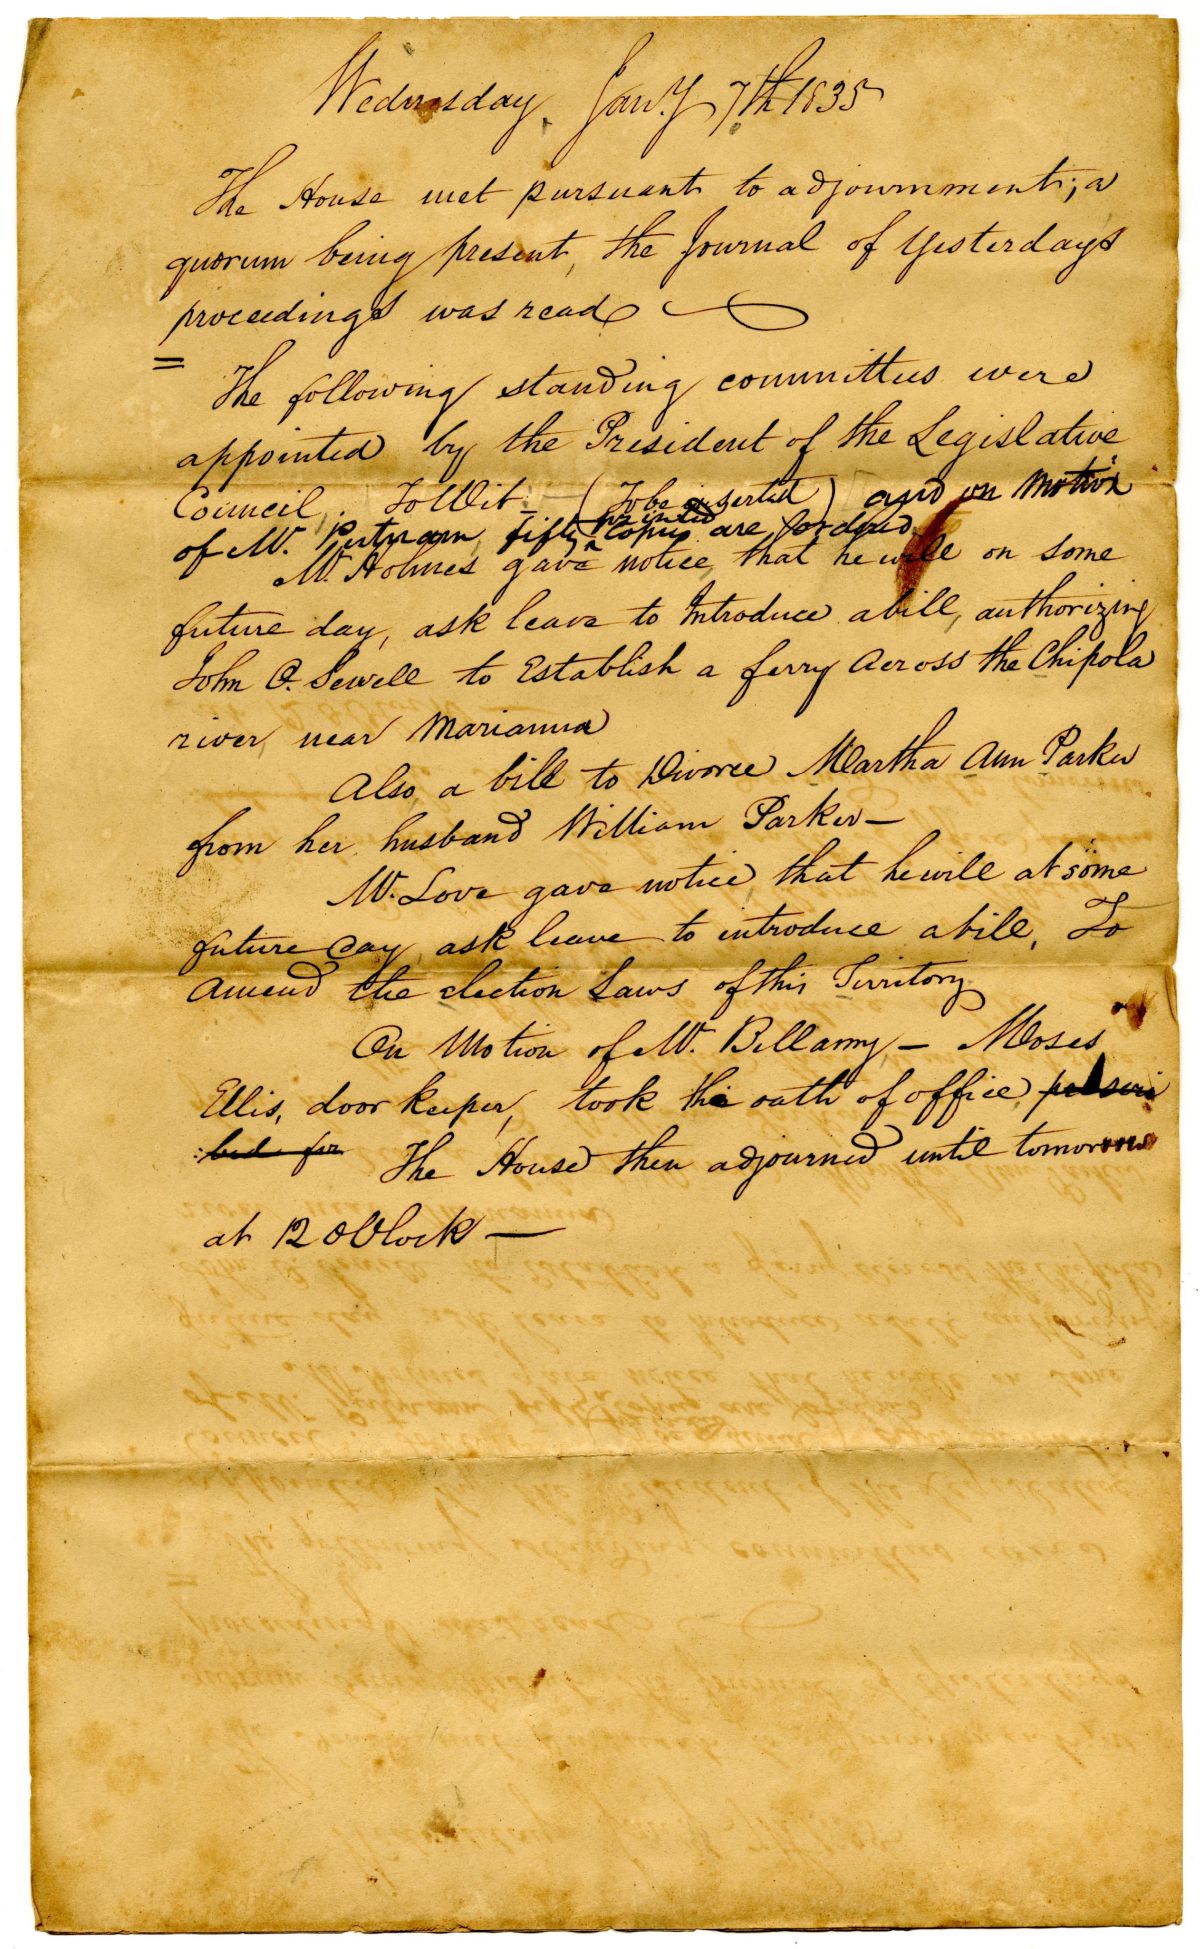 Wednesday, Jan.y 7th 1835
The House met pursuant to adjournment; a
quorum being present, the Journal of yesterdays
proceedings was read
= The following standing committees were
appointed by the President of the Legislative
Council. To Wit - (To be inserted) and on motion
of Mr. Putnam, fifty printed copies are ordered.
Mr. Holmes gave notice, that he will on some
future day, ask leave to Introduce a bill, authorizing
John O. Sewell to Establish a ferry across the Chipola
river, near Marianna
Also, a bill to Divorce Martha Ann Parker
from her husband William Parker—
Mr. Love gave notice that he will at some
future day ask leave to introduce a bill, To
amend the election Laws of this Territory
On Motion of Mr. Bellamy, — Moses
Ellis, door keeper, took the oath of office, prescri
:bed for The House then adjourned until tomorrow
at 12 OClock —